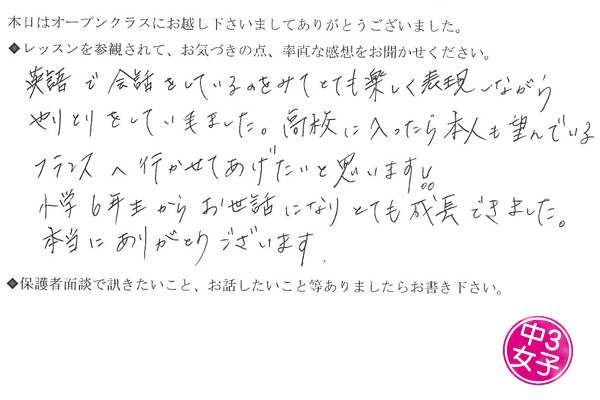 本日はオープンクラスにお越し下さいましてありがとうございました。
◆レッスンを参観されて、お気づきの点、率直な感想をお聞かせください。
英語で会話をしているのをみてとても楽しく表現しながら
やりとりをしていました。高校に入ったら本人も望んでいる
フランスへ行かせてあげたいと思います!!
小学6年生からお世話になりとても成長できました。
本当にありがとうございます.
◆保護者面談で訊きたいこと、お話したいこと等ありましたらお書き下さい。
中3
女子